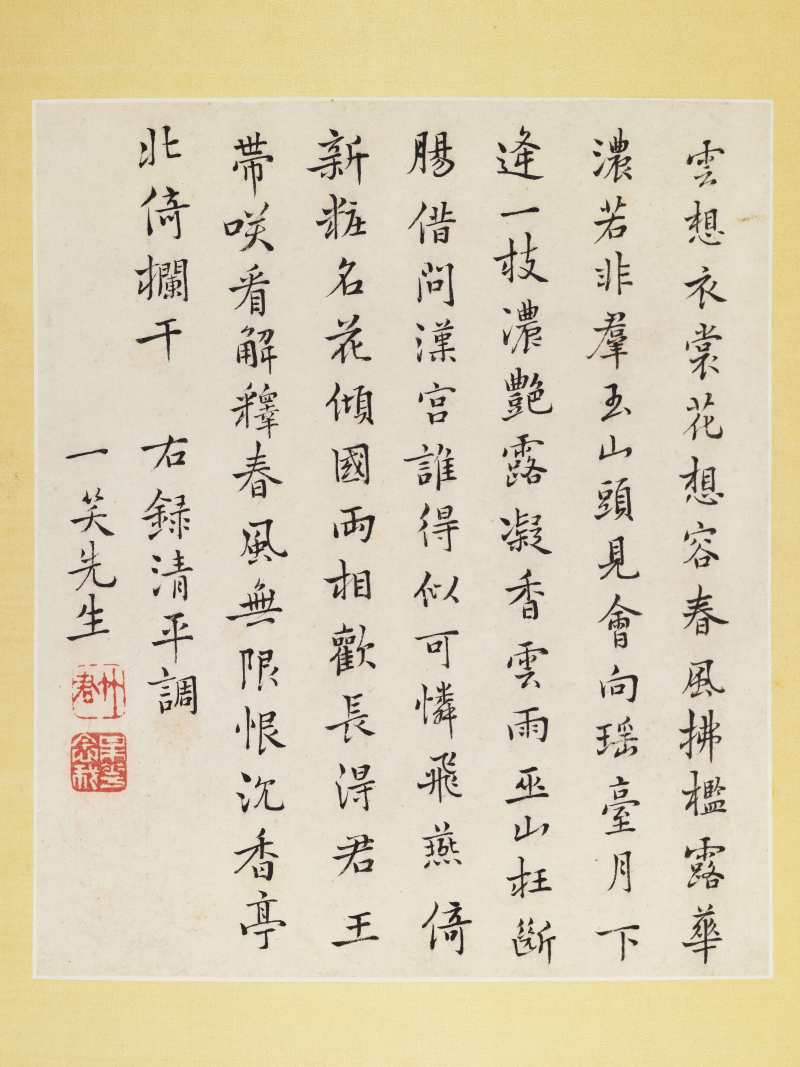 雲想衣裳花想容春風拂檻露華
濃若非羣玉山頭見會向瑶臺月下
逢一枝濃艷露凝香雲雨巫山枉斷
腸借問漢宫誰得似可憐飛燕倚
新粧名花傾國両相歡長淂君王
帶咲看解釋春風無限恨沉香亭
北倚欄干 右録清平調
一笑先生